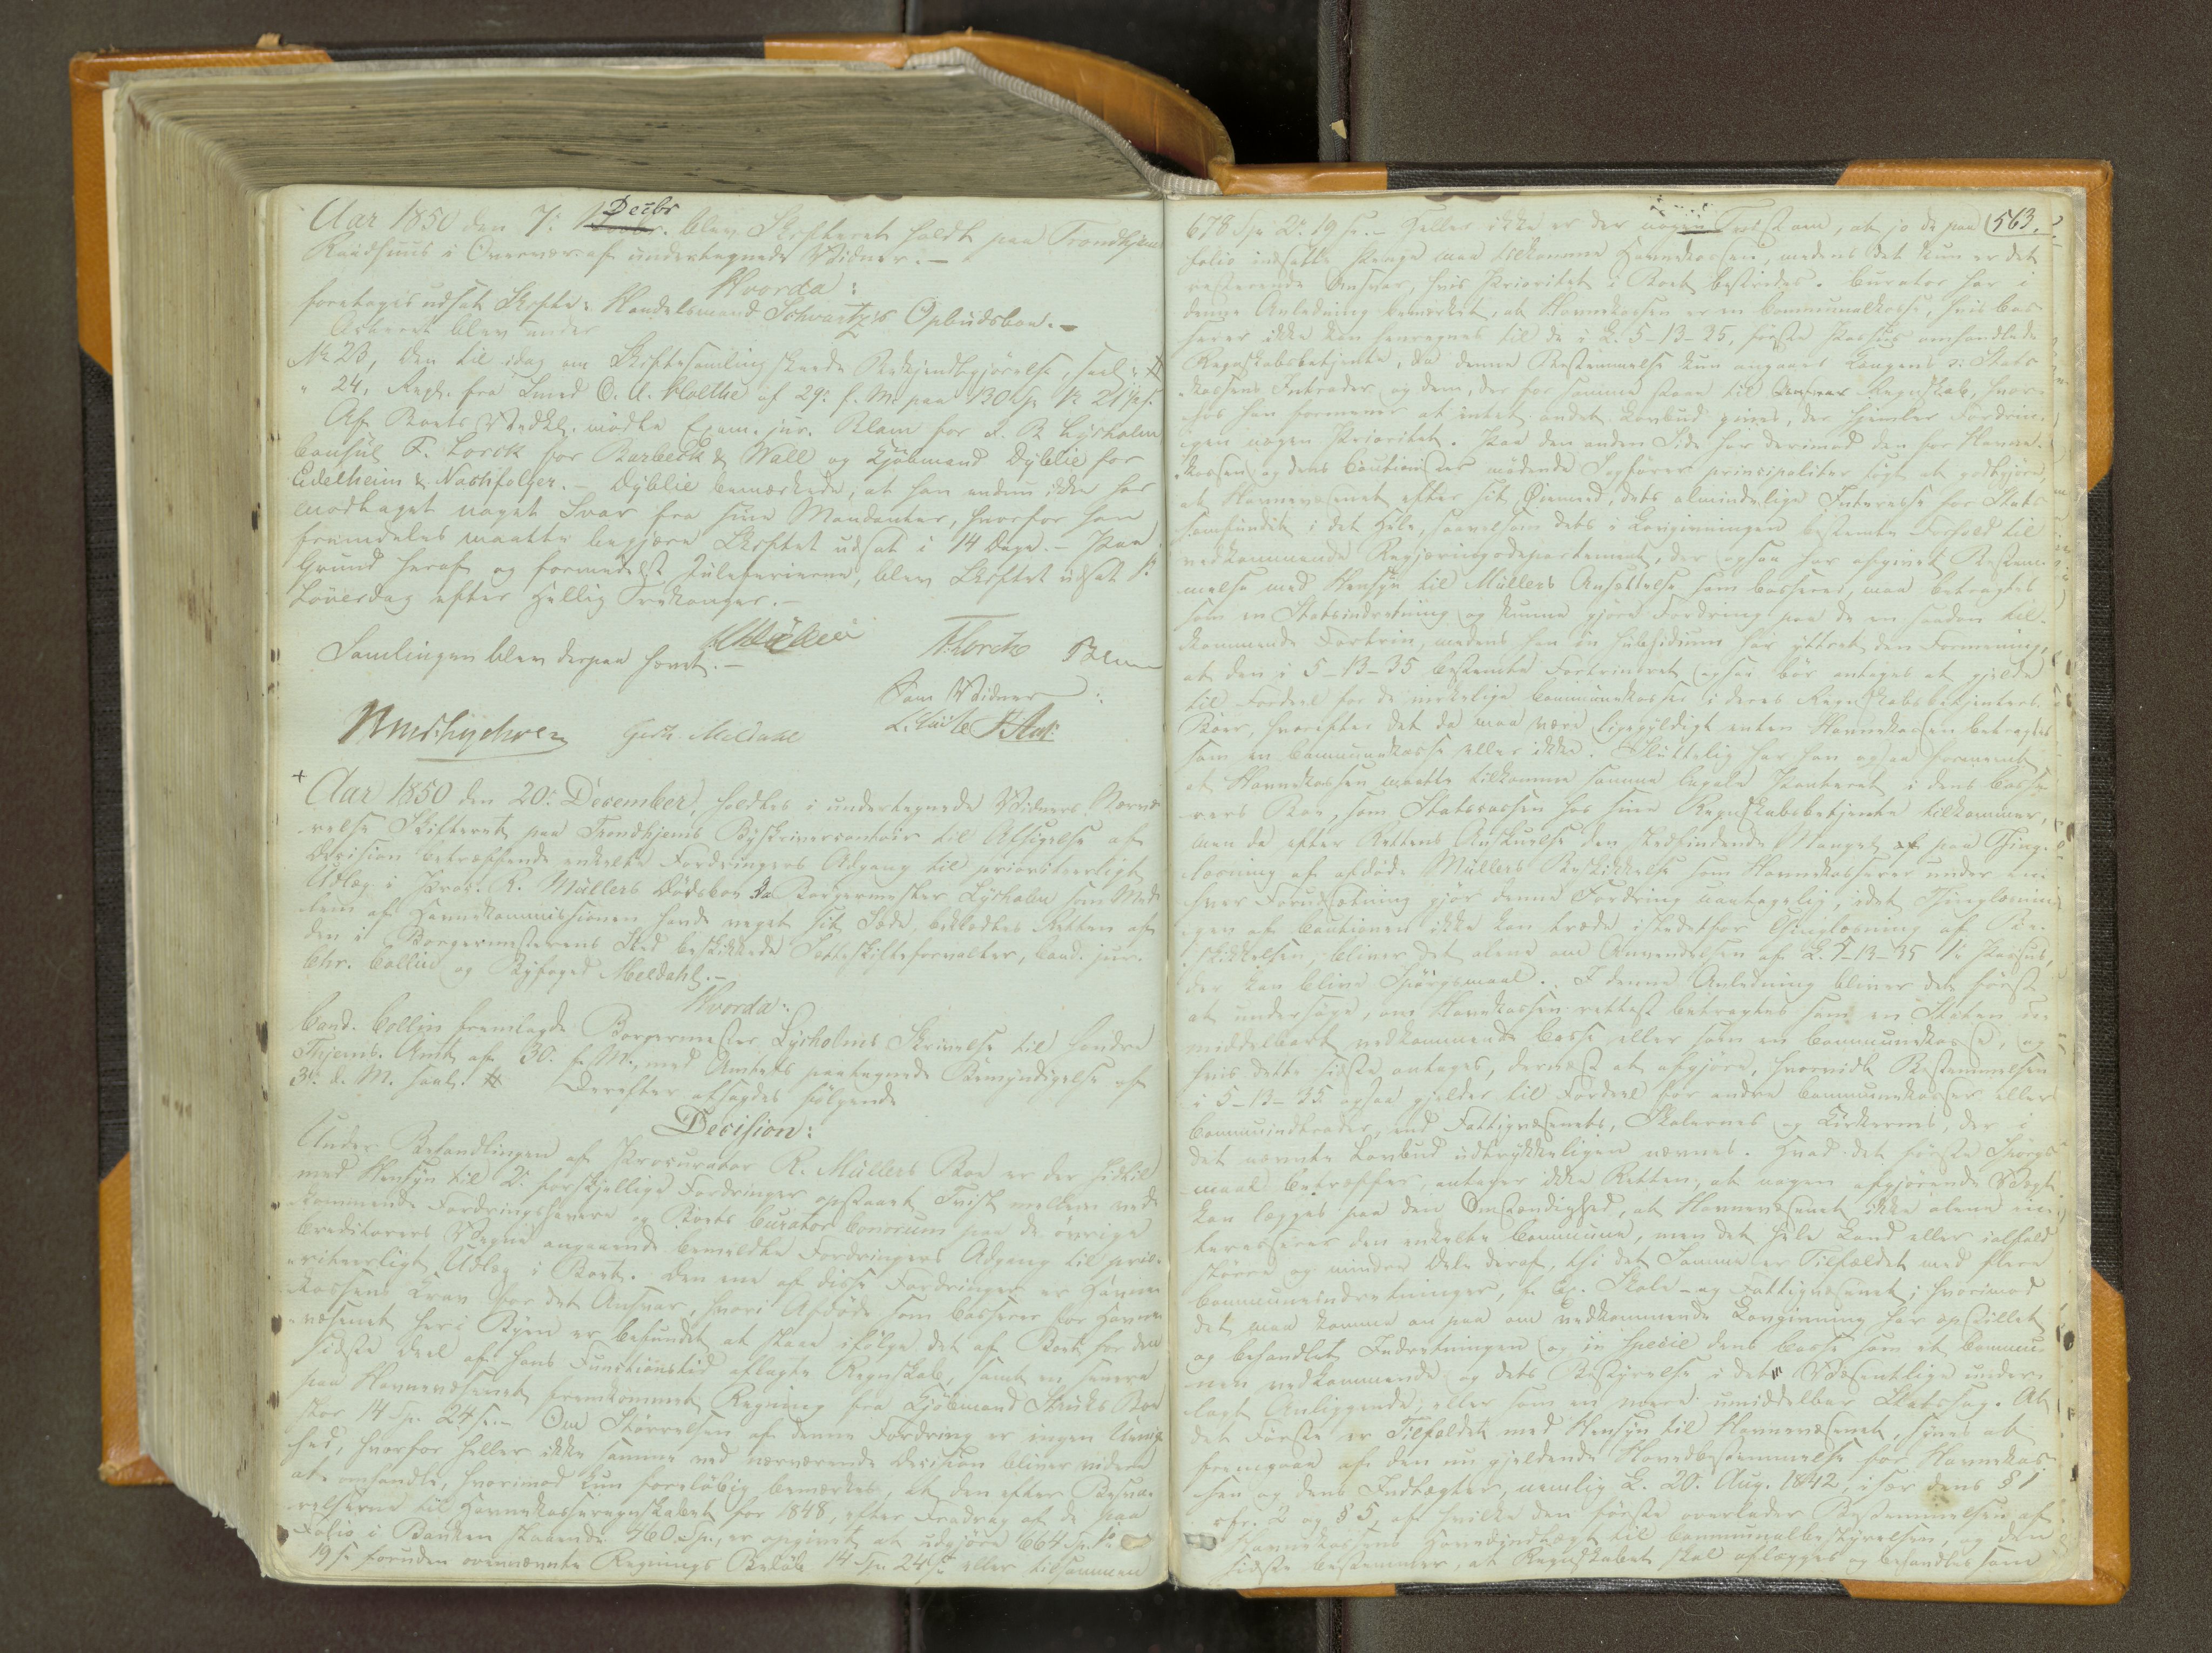 Aar 1850 den 7: Decbr. blev Skifteret holdt paa Trondhjems
Raadhuus i Overvær af undertegnede Vidner. —
Hvorda:
foretoges udsat Skifte: Handelsmand Schwartz's Opbudsboe. —
Acteret blev under
No 23, den til idag om Skiftesamling skeede Bekjendtgjørelse, saal:
" 24, Regn. fra Smed O. A. Holthe af 29: f. M. paa 130 Sp. 1 21 s.
Af Boets Vedkl. mødte Exam. jur. Blom for L. B Lysholm
Consul F. Lorck for Barbeck & Wall og Kjøbmand Dyblie for
Edelheim & Nachfolger. — Dyblie bemærkede, at han endnu ikke har
modtaget noget Svar fra sine Mandanter, hvorfor han
fremdeles maatte begjære Skiftet udsat i 14 Dage. — Paa
Grund heraf og formedelst Juleferierne, blev Skiftet udsat til
Løverdag efter Hellig Trekonger. —
Samlingen blev derpaa hævet. —
F. Lorck Blom
Som Vidner:
Gert. Meldahl
Aar 1850 den 20: December, holdtes i undertegnede Vidners Nærvæ-
relse Skifteret paa Trondhjems Byskrivercontoir til Afsigelse af
Decision betræffende enkelte Fordringers Adgang til prioriteerligt
Udlæg i Procr. R. Müllers Dødsboe. Da Borgermester Lysholm som Med-
lem af Havnekommissionen havde veget sit Sæde, beklædtes Retten af
den i Borgermesterens Sted beskikkede Sætteskifteforvalter, Cand. jur.
Chr. Collin og Byfoged Meldahl. —
Hvorda:
Cand. Collin fremlagde Borgermester Lysholms Skrivelse til Søndre
Thjems. Amt af 30: f. M., med Amtets paategnede Bemyndigelse af
3d: d. M. saal. Derefter afsagdes følgende
Decision:
Under Behandlingen af Procurator R. Müllers Boe er der hidtil
med Hensyn til 2: forskjellige Fordringer opstaaet Tvist mellem ved-
kommende Fordringshavere og Boets Curator bonorum paa de øvrige
Creditorers Vegne angaaende bemeldte Fordringers Adgang til prio-
riteerligt Udlæg i Boet. Den ene af disse Fordringer er Havne-
kassens Krav for det Ansvar, hvori Afdøde som Casserer for Havne-
væsenet her i Byen er befundet at staae ifølge det af Boet for den
sidste Deel af hans Functionstid aflagte Regnskab, samt en senere
paa Havnevæsenet fremkommet Regning fra Kjøbmand Strüks Boe
stor 14 Sp. 24 s. — Om Størrelsen af denne Fordring er ingen Uenig-
hed, hvorfor heller ikke samme ved nærværende Decision bliver videre
at omhandle, hvorimod kun foreløbig bemærkes, at den efter Besva-
relserne til Havnekasseregnskabet for 1848, efter Fradrag af de paa
Folio i Banken staaende 460 Sp., er opgivet at udgjøre 664 Sp. 1
19 s. foruden ovennævnte Regnings Beløb 14 Sp. 24 s. eller tilsammen
563.
678 Sp. 2: 19 s. — Heller ikke er der nogen Tvist om, at jo de paa
Folio indsatte Penge maa tilkomme Havnekassen, medens det kun er det
resterende Ansvar, hvis Prioritet i Boet bestrides. Curator har i
denne Anledning bemærket, at Havnekassen er en Communalkasse, hvis Cas-
serer ikke kan henregnes til de i L. 5-13-35, første Passus omhandlede
Regnskabsbetjente, da denne Bestemmelse kun angaaer Kongens o: Stats-
kassens Intrader og dem, der for samme staae til Regnskab, hvor-
hos han formener at intet andet Lovbud gives, der hjemler Fordrin-
gen nogen Prioritet. Paa den anden Side har derimod den for Havne-
kassen og dens Cautionister mødende Sagfører principaliter søgt at godtgjøre,
at Havnevæsenet efter sit Øiemed, dets almindelige Interesse for Stats-
samfundet i det Hele, saavelsom dets i Lovgivningen bestemte Forhold til
vedkommende Regjeringsdepartement, der ogsaa har afgivet Bestem-
melse med Hensyn til Müllers Ansættelse som Casserer, maa betragtes
som en Statsindretning og kunne gjøre Fordring paa de en saadan til-
kommende Fortrin, medens han in subsidium har yttret den Formening,
at den i 5-13-35 bestemte Fortrinsret ogsaa bør antages at gjælde
til Fordeel for de virkelige Communekasser i deres Regnskabsbetjenters
Boer, hvorefter det da maa være ligegyldigt enten Havnekassen betragtes
som en Communekasse eller ikke. Sluttelig har han ogsaa formeent
at Havnekassen maatte tilkomme samme legale Panteret i dens Casse-
rers Boe, som Statscassen hos sine Regnskabsbetjente tilkommer,
men da efter Rettens Anskuelse den stedfindende Mangel paa Thing-
læsning af afdøde Müllers Beskikkelse som Havnekasserer under en-
hver Forudsætning gjør denne Fordring uantagelig, idet Thinglæsnin-
gen af Cautionen ikke kan træde istedetfor Thinglæsning af Be-
skikkelsen, bliver det alene om Anvendelsen af L. 5-13-35 1: Passus,
der kan blive Spørgsmaal. I denne Anledning bliver det først
at undersøge, om Havnekassen rettest betragtes som en Staten u-
middelbart vedkommende Casse eller som en Communekasse, og
hvis dette sidste antages, dernæst at afgjøre, hvorvidt Bestemmelsen
i 5-13-35 ogsaa gjelder til Fordeel for andre Communekasser eller
Communeindtrader, end Fattigvæsenets, Skolernes og Kirkernes, der i
det nævnte Lovbud udtrykkeligen nævnes. Hvad det første Spørgs-
maal betræffer, antager ikke Retten, at nogen afgjørende Vægt
kan lægges paa den Omstændighed, at Havnevæsenet ikke alene in-
teresserer den enkelte Commune, men det hele Land eller ialfald
større og mindre Dele deraf, thi det Samme er Tilfældet med flere
Communeindretninger, f. Ex. Skole- og Fattigvæsenet; hvorimod
det maa komme an paa om vedkommende Lovgivning har opstillet
og behandlet Indretningen og in specie dens Casse som et Commu-
nen vedkommende og dets Bestyrelse i det Væsentlige under-
lagt Anliggende, eller som en mere umiddelbar Statssag. At
det Første er Tilfældet med Hensyn til Havnevæsenet, synes at
fremgaae af den nu gjeldende Hovedbestemmelse for Havnekas-
sen og dens Indtægter, nemlig L. 20: Aug. 1842, især dens § 1
cfr. 2 og § 5, af hvilke den første overlader Bestemmelsen af
Havnekassens Hovedindtægt til Communalbestyrelsen, og den
sidste bestemmer, at Regnskabet skal aflægges og behandles som